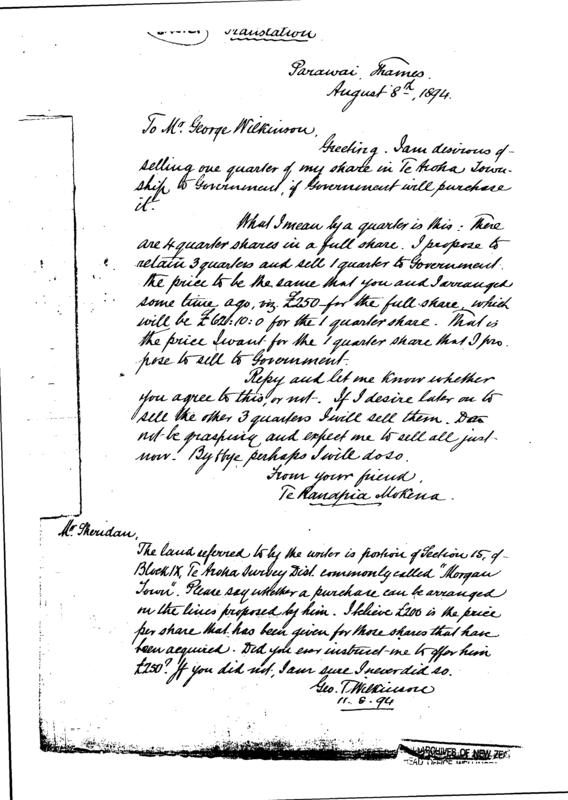 Translation
Parawai, Thames.
August 8th, 1894.
To Mr. George Wilkinson,
Greeting. I am desirous of
selling one quarter of my share in Te Aroha Town-
ship to Government, if Government will purchase
it.
What I mean by a quarter is this: There
are 4 quarter shares in a full share. I propose to
retain 3 quarters and sell 1 quarter to Government.
the price to be the same that you and I arranged
some time ago, viz £250 for the full share, which
will be £62:10:0 for the 1 quarter share. That is
the price I want for the 1 quarter share that I pro-
pose to sell to Government.
Repy and let me know whether
you agree to this, or not. If I desire later on to
sell the other 3 quarters I will sell them. Do
not be grasping and expect me to sell all just
now. By & bye perhaps I will do so.
From your friend,
Te Ranapia Mokena.
Mr. Sheridan,
The land referred to by the writer is portion of Section 15, of
Block IX, Te Aroha Survey Dist. commonly called "Morgan
Town". Please say whether a purchase can be arranged
on the lines proposed by him. I believe £200 is the price
per share that has been given for those shares that have
been acquired. Did you ever instruct me to offer him
£250? If you did not, I am sure I never did so.
Geo. T. Wilkinson
11. 8. 94
ARCHIVES OF NEW ZE
HEAD OFFICE